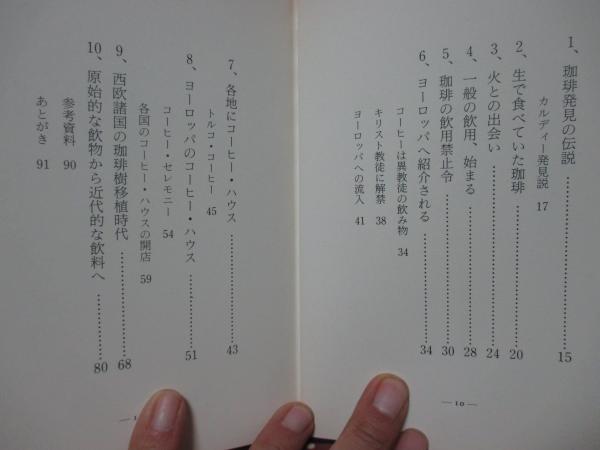 1、珈琲発見の伝説…………15
カルディー発見説 17
2、生で食べていた珈琲…………20
3、火との出会い…………24
4、一般の飲用、始まる…………28
5、珈琲の飲用禁止令…………30
6、ヨーロッパへ紹介される…………34
コーヒーは異教徒の飲み物 34
キリスト教徒に解禁 38
ヨーロッパへの流入 41
— 10 —
7、各地にコーヒー・ハウス…………43
トルコ・コーヒー 45
8、ヨーロッパのコーヒー・ハウス…………51
コーヒー・セレモニー 54
各国のコーヒー・ハウスの開店 59
9、西欧諸国の珈琲樹移植時代…………68
10、原始的な飲物から近代的な飲料へ…………80
参考資料 90
あとがき 91